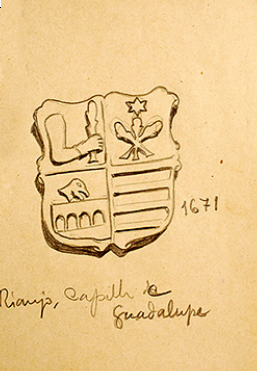 1671
Rianjo, Capilla de
Guadalupe